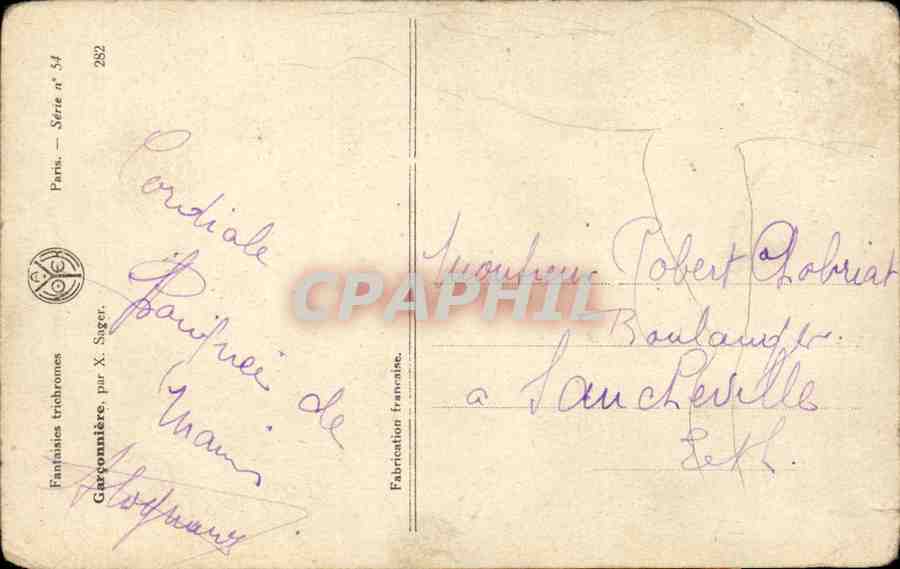 Fantaisies trichromes
Paris. — Série n° 54
Garçonnière, par X. Sager.
282
A.
Cordiale
Poignée de
Main
Fabrication française.
CPAPHIL
Monsieur Robert Chabriat
Boulanger
à Sancheville
E et L.